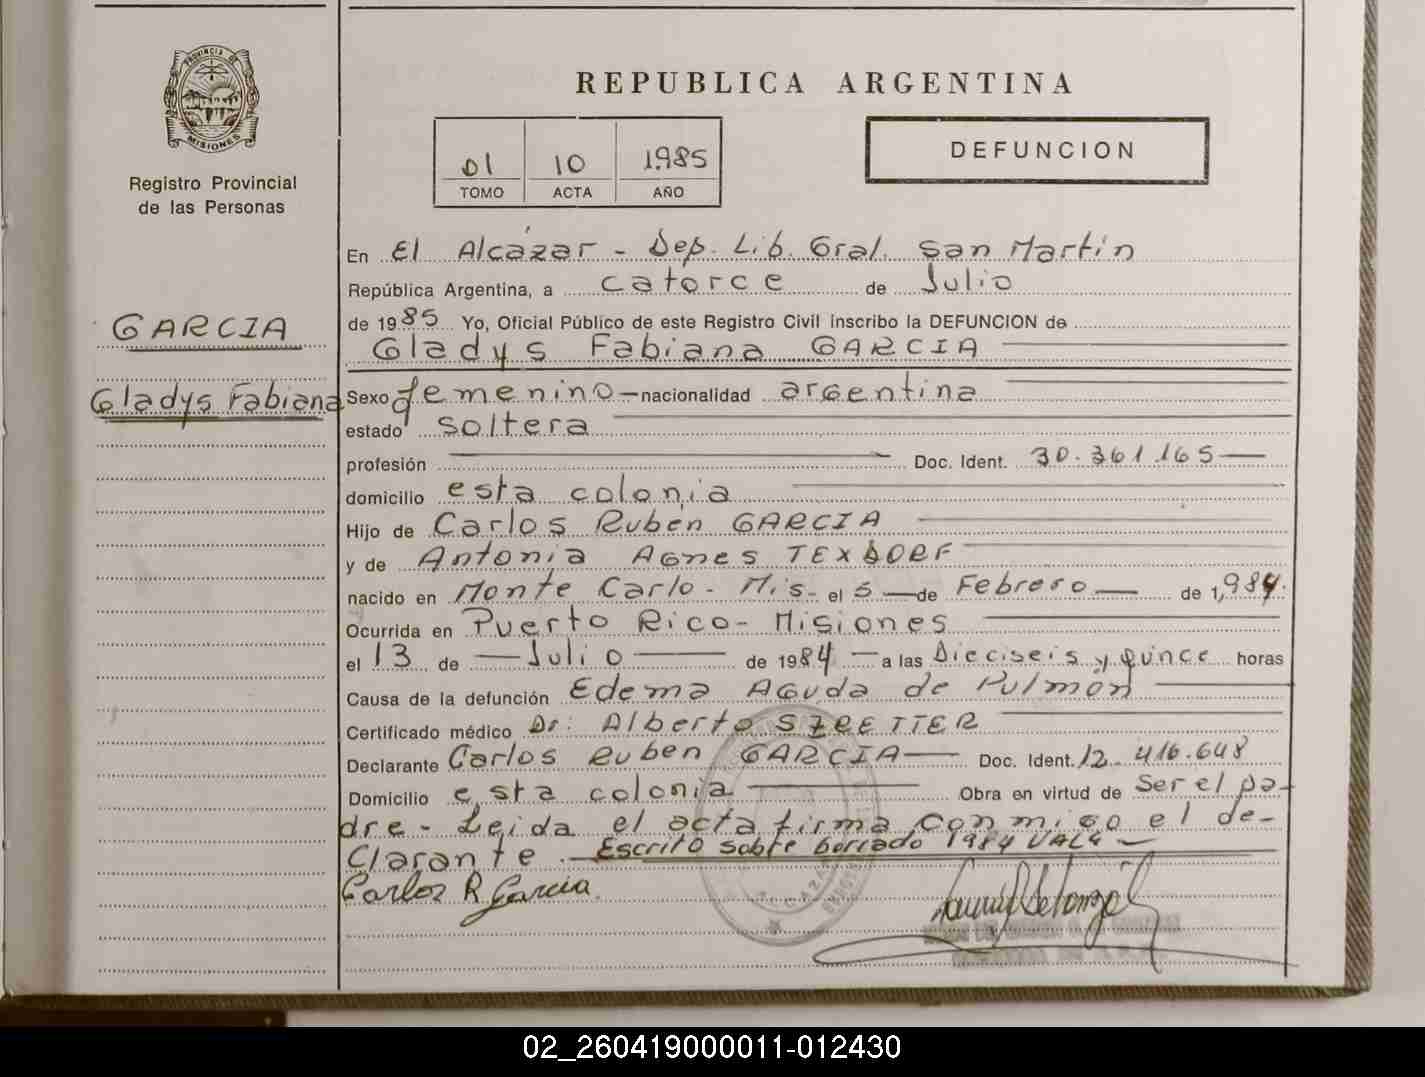 REPUBLICA ARGENTINA
PROVINCIA DE
MISIONES
Registro Provincial
de las Personas
01 10 1985
TOMO ACTA AÑO
DEFUNCION
GARCIA
Gladys Fabiana
En El Alcázar - Dep. Lib. Gral. San Martín
República Argentina, a catorce de Julio
de 1985 Yo, Oficial Público de este Registro Civil inscribo la DEFUNCION de
Gladys Fabiana GARCIA
Sexo femenino nacionalidad argentina
estado soltera
profesión Doc. Ident. 30.361.165
domicilio esta colonia
Hijo de Carlos Ruben GARCIA
y de Antonia Agnes TEXDORF
nacido en Monte Carlo - Mis- el 5 de Febrero de 1,984.
Ocurrida en Puerto Rico - Misiones
el 13 de Julio de 1984 a las Dieciseis y quince horas
Causa de la defunción Edema Aguda de Pulmón
Certificado médico Dr: Alberto
Declarante Carlos Ruben GARCIA Doc. Ident. 12.416.648
Domicilio esta colonia Obra en virtud de Ser el pa-
dre - Leida el acta firma conmigo el de-
clarante. Escrito sobre borrado 1984 VALE
Carlos R Garcia.
02_260419000011-012430